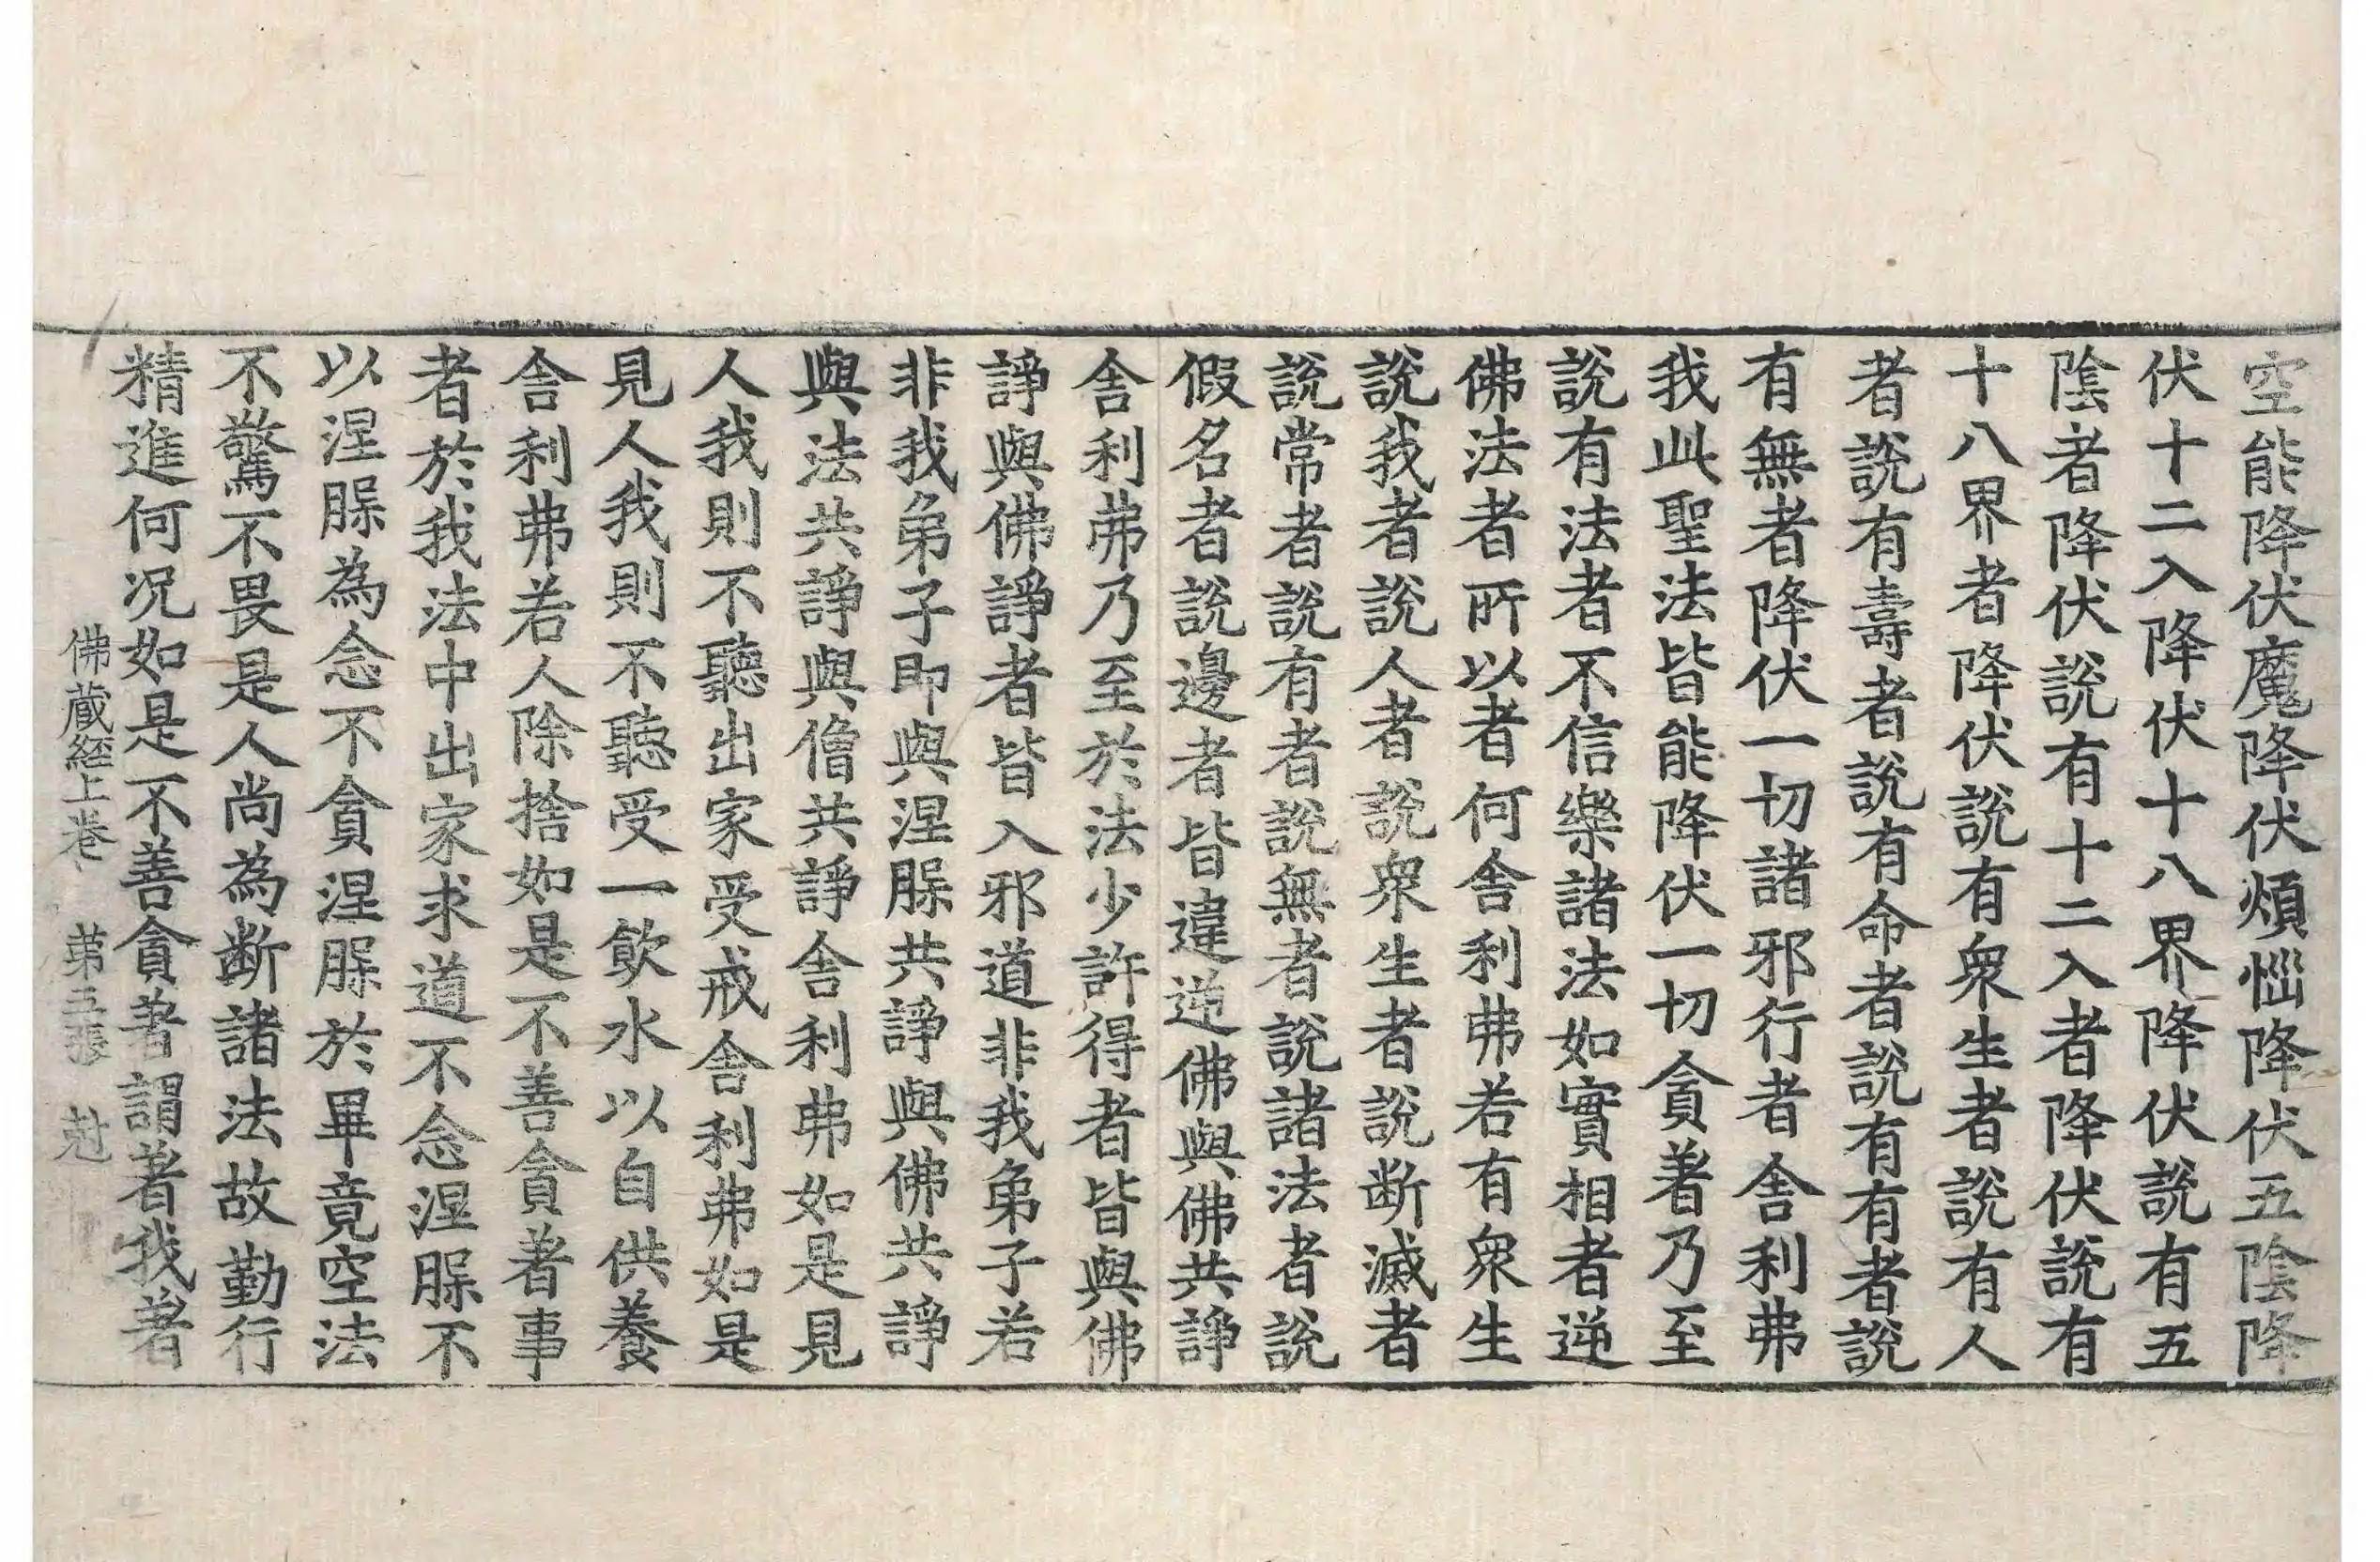 空能降伏魔降伏煩惱降伏五陰降
伏十二入降伏十八界降伏說有五
陰者降伏說有十二入者降伏說有
十八界者降伏說有衆生者說有人
者說有壽者說有命者說有有者說
有無者降伏一切諸邪行者舍利弗
我此聖法皆能降伏一切貪著乃至
說有法者不信樂諸法如實相者逆
佛法者所以者何舍利弗若有衆生
說我者說人者說衆生者說斷滅者
說常者說有者說無者說諸法者說
假名者說邊者皆違逆佛與佛共諍
舍利弗乃至於法少許得者皆與佛
諍與佛諍者皆入邪道非我弟子若
非我弟子即與涅槃共諍與佛共諍
與法共諍與僧共諍舍利弗如是見
人我則不聽出家受戒舍利弗如是
見人我則不聽受一飲水以自供養
舍利弗若人除捨如是不善貪著事
者於我法中出家求道不念涅槃不
以涅槃為念不貪涅槃於畢竟空法
不驚不畏是人尚為斷諸法故勤行
精進何況如是不善貪著謂著我著
佛藏經上卷 第五張 尅